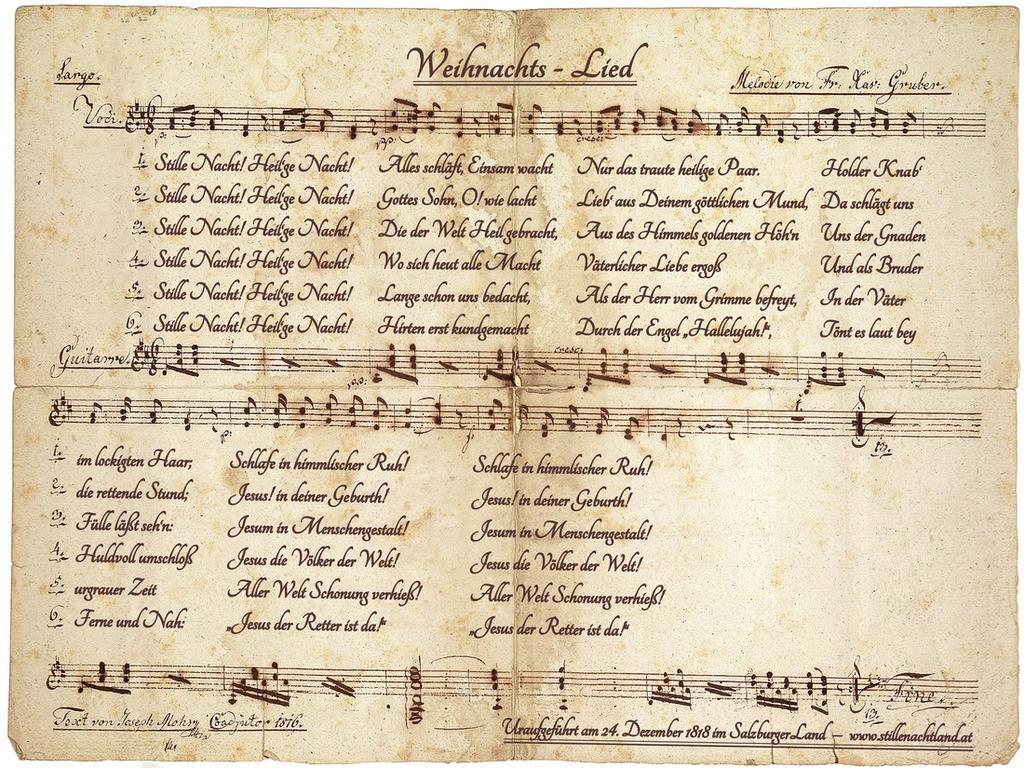 Weihnachts - Lied
Largo.
Melodie von Fr: Xav: Gruber.
Voci.
p:
pp:
cresc:
1. Stille Nacht! Heil'ge Nacht! Alles schläft, Einsam wacht Nur das traute heilige Paar. Holder Knab'
2. Stille Nacht! Heil'ge Nacht! Gottes Sohn, O! wie lacht Lieb' aus Deinem göttlichen Mund, Da schlägt uns
3. Stille Nacht! Heil'ge Nacht! Die der Welt Heil gebracht, Aus des Himmels goldenen Höh'n Uns der Gnaden
4. Stille Nacht! Heil'ge Nacht! Wo sich heut alle Macht Väterlicher Liebe ergoß Und als Bruder
5. Stille Nacht! Heil'ge Nacht! Lange schon uns bedacht, Als der Herr vom Grimme befreyt, In der Väter
6. Stille Nacht! Heil'ge Nacht! Hirten erst kundgemacht Durch der Engel „Hallelujah!“, Tönt es laut bey
Guitarre.
cresc:
pp:
p:
f:
13.
1. im lockigten Haar; Schlafe in himmlischer Ruh! Schlafe in himmlischer Ruh!
2. die rettende Stund; Jesus! in deiner Geburth! Jesus! in deiner Geburth!
3. Fülle läßt seh'n: Jesum in Menschengestalt! Jesum in Menschengestalt!
4. Huldvoll umschloß Jesus die Völker der Welt! Jesus die Völker der Welt!
5. urgrauer Zeit Aller Welt Schonung verhieß! Aller Welt Schonung verhieß!
6. Ferne und Nah: „Jesus der Retter ist da!“ „Jesus der Retter ist da!“
Fine.
13.
Text von Joseph Mohr, Coadjutor 1816.
Uraufgeführt am 24. Dezember 1818 im SalzburgerLand – www.stillenachtland.at